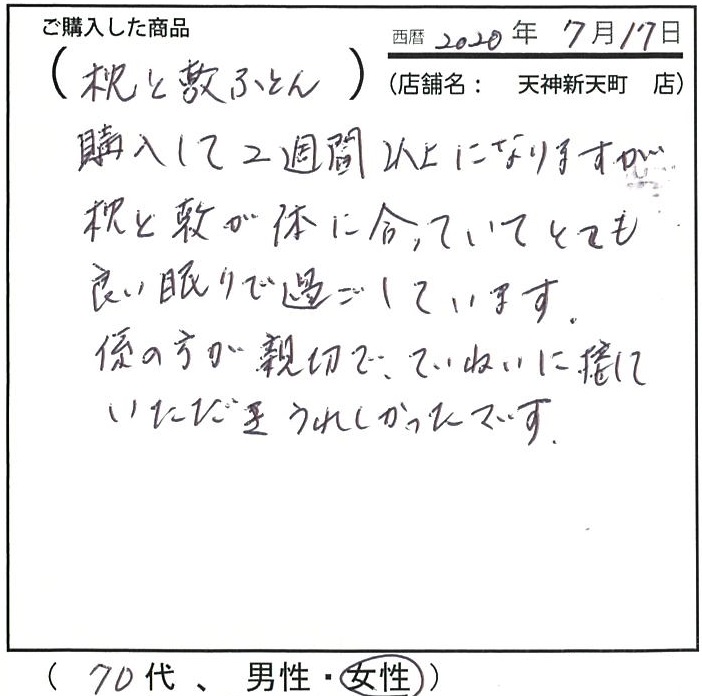 ご購入した商品
西暦 2020年 7月17日
(枕と敷ふとん)
(店舗名： 天神新天町 店)
購入して2週間以上になりますが
枕と敷が体に合っていてとても
良い眠りで過ごしています.
係の方が親切で、ていねいに接して
いただきうれしかったです.
(70代、男性・女性)